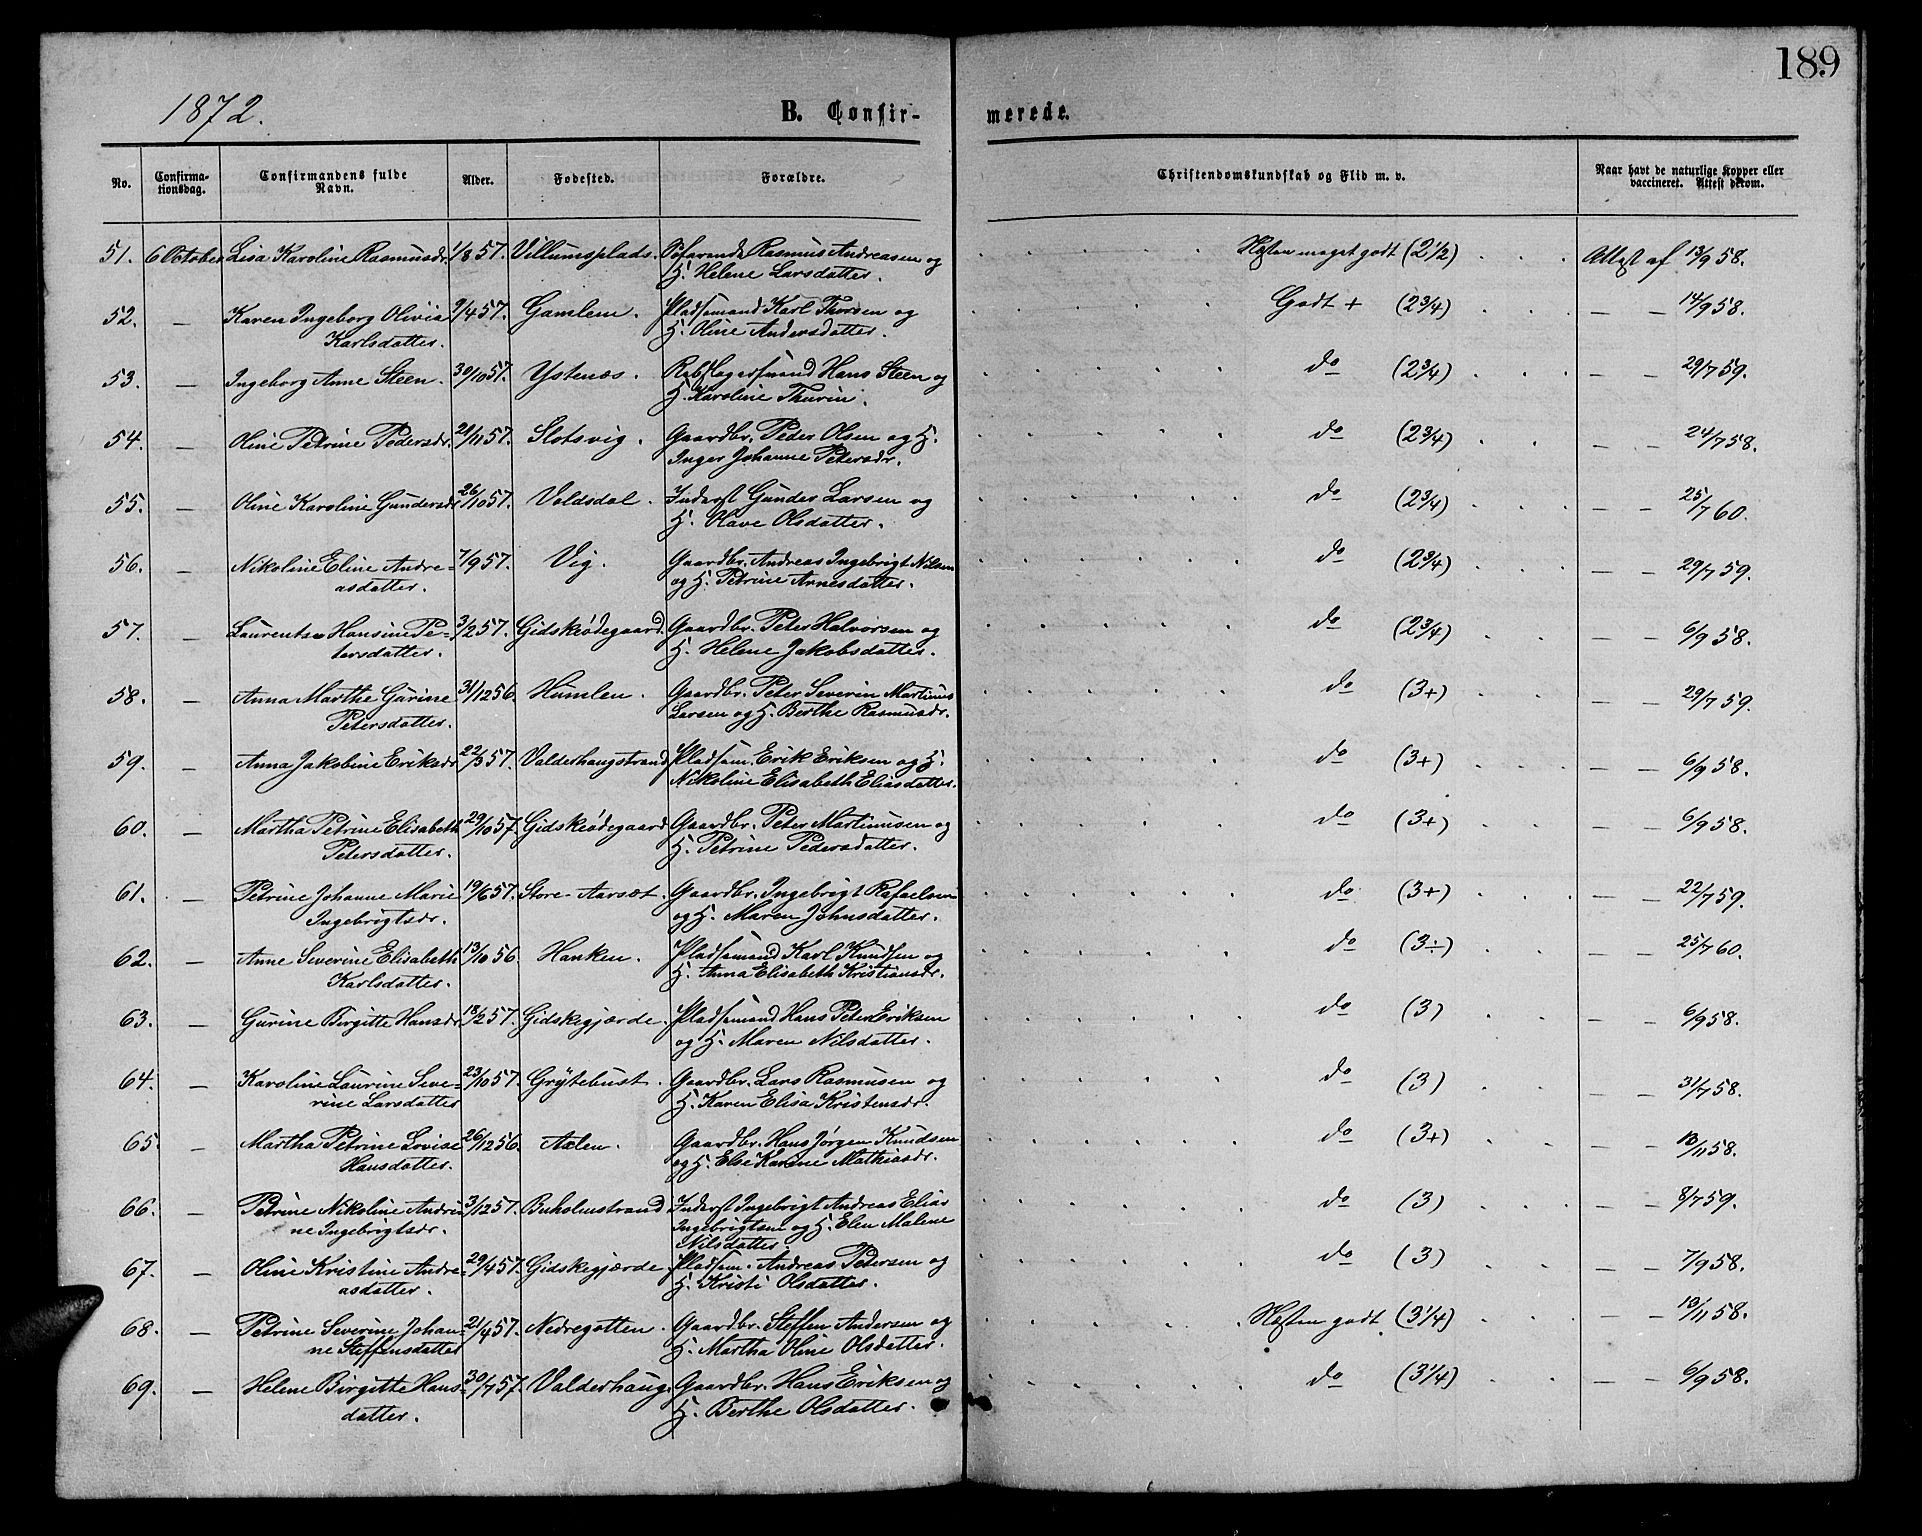 189
1872.
B. Confir-
merede.
No.
Confirma-
tionsdag.
Confirmandens fulde
Navn.
Alder.
Fodested.
Forældre.
Christendomskundskab og Flid m. v.
Naar havt de naturlige Kopper eller
vaccineret. Attest derom.
51. 6 October Lisa Karoline Rasmusdr. 1/8 57. Villumsplads. Söfarende Rasmus Andreasen og Næsten meget godt (2 1/2) Attest af 13/9 58.
H. Helene Larsdatter.
52. — Karen Ingeborg Olivia 9/4 57. Gamlem. Pladsemand Karl Thorsen og Godt + (2 3/4) — — 14/9 58.
Karlsdatter. H. Oline Andersdatter.
53. — Ingeborg Anne Steen. 30/10 57. Ystenæs. Rebslagersmand Hans Steen og do (2 3/4) — — 29/7 59.
H. Karoline Thurin.
54. — Oline Petrine Pedersdr. 21/11 57. Slotsvig. Gaardbr. Peder Olsen og H. do (2 3/4) — — 24/7 58.
Inger Johanne Petersdr.
55. — Oline Karoline Gundersdr. 26/10 57. Valdsdal. Inderst Gunder Larsen og do (2 3/4) — — 25/7 60.
H. Olave Olsdatter.
56. — Nikoline Eline Andre- 7/9 57. Vig. Gaardbr. Andreas Ingebrigt Nilsen do (2 3/4) — — 29/7 59.
asdatter. og H. Petrine Arnesdatter.
57. — Laurentse Hansine Pe- 3/2 57. Gidskeödegaard. Gaardbr. Peter Halvorsen og do (2 3/4) — — 6/9 58.
tersdatter. H. Helene Jakobsdatter.
58. — Anna Marthe Gurine 31/12 56. Humlen. Gaardbr. Peter Severin Martinus do (3+) — — 29/7 59.
Petersdatter. Larsen og H. Berthe Rasmusdr.
59. — Anna Jakobine Eriksdr. 22/3 57. Valderhaugstrand Pladsem. Erik Eriksen og H. do (3+) — — 6/9 58.
Nikoline Elisabeth Eliasdatter.
60. — Martha Petrine Elisabeth 29/10 57. Gidskeödegaard Gaardbr. Peter Martinusen og do (3+) — — 6/9 58.
Petersdatter. H. Petrine Pedersdatter.
61. — Petrine Johanne Marie 19/6 57. Store-Aarsæt. Gaardbr. Ingebrigt Rafaelsen do (3+) — — 22/7 59.
Ingebrigtsdr. og H. Maren Johnsdatter.
62. — Anne Severine Elisabeth 13/10 56. Hanken. Pladsemand Karl Knudsen og do (3÷) — — 25/7 60.
Karlsdatter. H. Anna Elisabeth Kristiansdr.
63. — Gurine Birgitte Hansdr. 18/2 57. Gidskegjærde. Pladsemand Hans Peter Eriksen do (3) — — 6/9 58.
og H. Maren Nilsdatter.
64. — Karoline Laurine Seve- 23/10 57. Grÿtebust. Gaardbr. Lars Rasmusen og do (3) — — 31/7 58.
rine Larsdatter H. Karen Elisa Kristensdr.
65. — Martha Petrine Lovise 26/12 56. Aalen. Gaardbr. Hans Jörgen Knudsen do (3+) — — 13/11 58.
Hansdatter. og H. Else Karine Mathiasdr.
66. — Petrine Nikoline Andri- 3/12 57. Buholmstrand. Inderst Ingebrigt Andreas Elias do (3) — — 8/7 59.
ne Ingebrigtsdr. Ingebrigtsen og H. Elen Malene
Nilsdatter
67. — Oline Kristine Andre- 29/4 57. Gidskegjærde. Pladsem. Andreas Petersen og do (3) — — 7/9 58.
asdatter. H. Kristi Olsdatter.
68. — Petrine Severine Johan- 21/4 57. Nedregotten. Gaardbr. Steffen Andersen og Næsten godt (3 1/4) — — 13/11 58.
ne Steffensdatter H. Martha Oline Olsdatter.
69. — Helene Birgitte Hans- 30/7 57. Valderhaug. Gaardbr. Hans Eriksen og do (3 1/4) — — 6/9 58.
datter. H. Berthe Olsdatter.